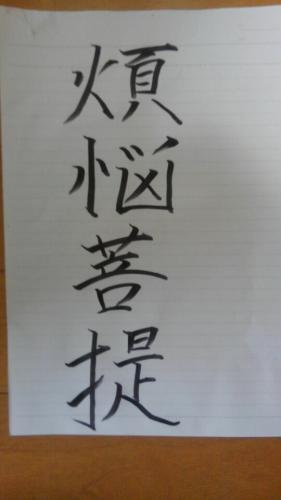 煩悩菩提